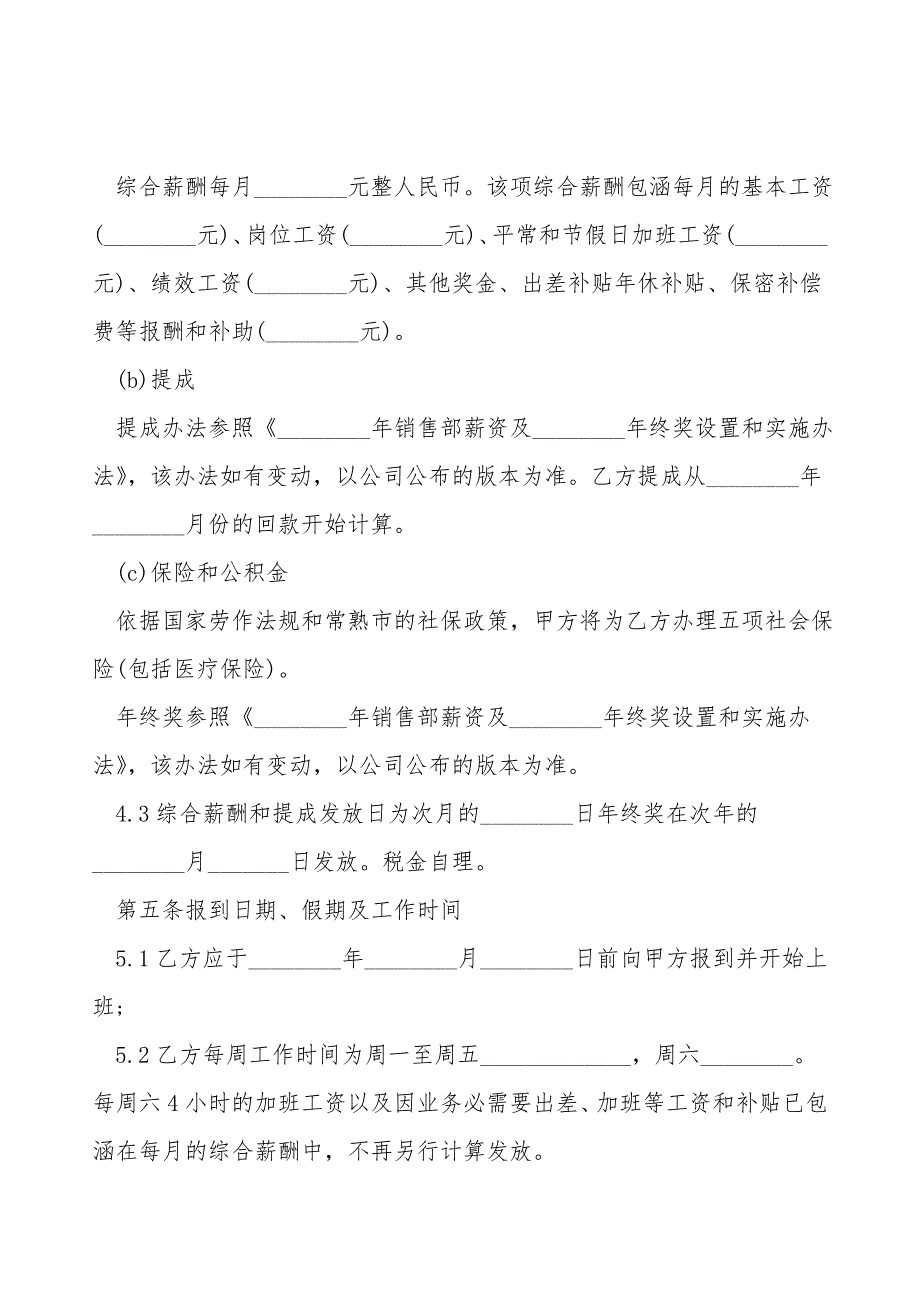 综合薪酬每月________元整人民币。该项综合薪酬包涵每月的基本工资
(________元)、岗位工资(________元)、平常和节假日加班工资(________
元)、绩效工资(________元)、其他奖金、出差补贴年休补贴、保密补偿
费等报酬和补助(________元)。
(b)提成
提成办法参照《________年销售部薪资及________年终奖设置和实施办
法》，该办法如有变动，以公司公布的版本为准。乙方提成从________年
________月份的回款开始计算。
(c)保险和公积金
依据国家劳作法规和常熟市的社保政策，甲方将为乙方办理五项社会保
险(包括医疗保险)。
年终奖参照《________年销售部薪资及________年终奖设置和实施办
法》，该办法如有变动，以公司公布的版本为准。
4.3综合薪酬和提成发放日为次月的________日年终奖在次年的
________月_______日发放。税金自理。
第五条报到日期、假期及工作时间
5.1乙方应于________年________月________日前向甲方报到并开始上
班；
5.2乙方每周工作时间为周一至周五_____________，周六________。
每周六4小时的加班工资以及因业务必需要出差、加班等工资和补贴已包
涵在每月的综合薪酬中，不再另行计算发放。